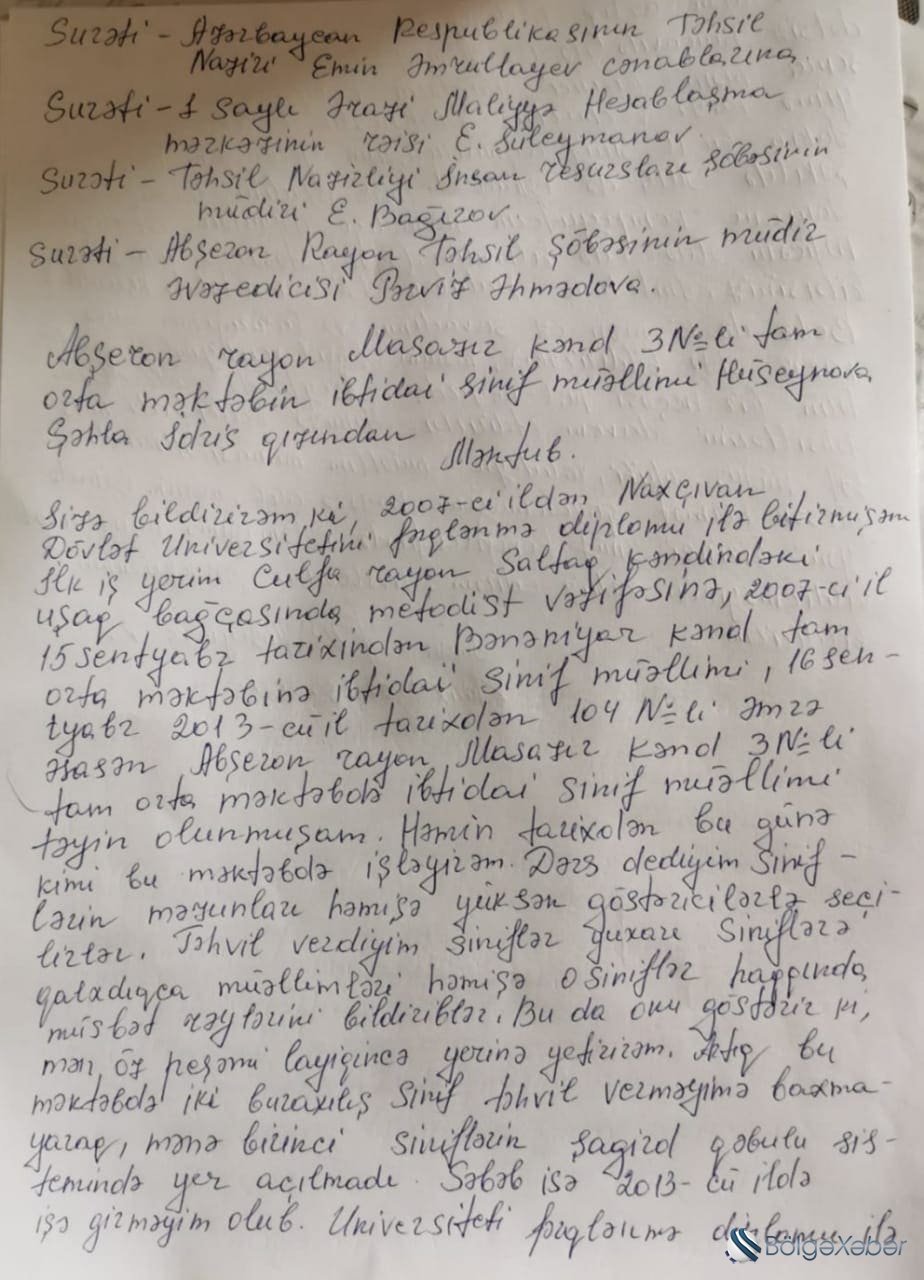 Surəti - Azərbaycan Respublikasının Təhsil
Naziri Emin Əmrullayev cənablarına
Surəti - 1 saylı Ərazi Maliyyə Hesablaşma
mərkəzinin rəisi E. Süleymanov.
Surəti - Təhsil Nazirliyi İnsan resursları şöbəsinin
müdiri E. Bağırov.
Surəti - Abşeron Rayon Təhsil Şöbəsinin müdir
əvəzedicisi Pərviz Əhmədova.
Abşeron rayon Masazır kənd 3 №-li tam
orta məktəbin ibtidai sinif müəllimi Hüseynova
Şəhla İdris qızından
Məktub.
Sizə bildirirəm ki, 2007-ci ildən Naxçıvan
Dövlət Universitetini fərqlənmə diplomu ilə bitirmişəm
İlk iş yerim Culfa rayon Saltaq kəndindəki
uşaq bağçasında metodist vəzifəsinə, 2007-ci il
15 sentyabr tarixindən Bənəniyar kənd tam
orta məktəbinə ibtidai sinif müəllimi, 16 sen-
tyabr 2013-cü il tarixdən 104 №-li əmrə
əsasən Abşeron rayon Masazır kənd 3 №-li
tam orta məktəbdə ibtidai sinif müəllimi
təyin olunmuşam. Həmin tarixdən bu günə
kimi bu məktəbdə işləyirəm. Dərs dediyim sinif-
lərin məzunları həmişə yüksək göstəricilərlə seçi-
lirlər. Təhvil verdiyim siniflər yuxarı siniflərə
qalxdıqca müəllimləri həmişə o siniflər haqqında
müsbət rəylərini bildiriblər. Bu da onu göstərir ki,
mən öz peşəmi layiqincə yerinə yetirirəm. Artıq bu
məktəbdə iki buraxılış sinif təhvil verməyimə baxma-
yaraq, mənə birinci siniflərin şagird qəbulu sis-
temində yer açılmadı. Səbəb isə 2013-cü ildə
işə girməyim olub. Universiteti fərqlənmə diplomu ilə
BölgəXəbər